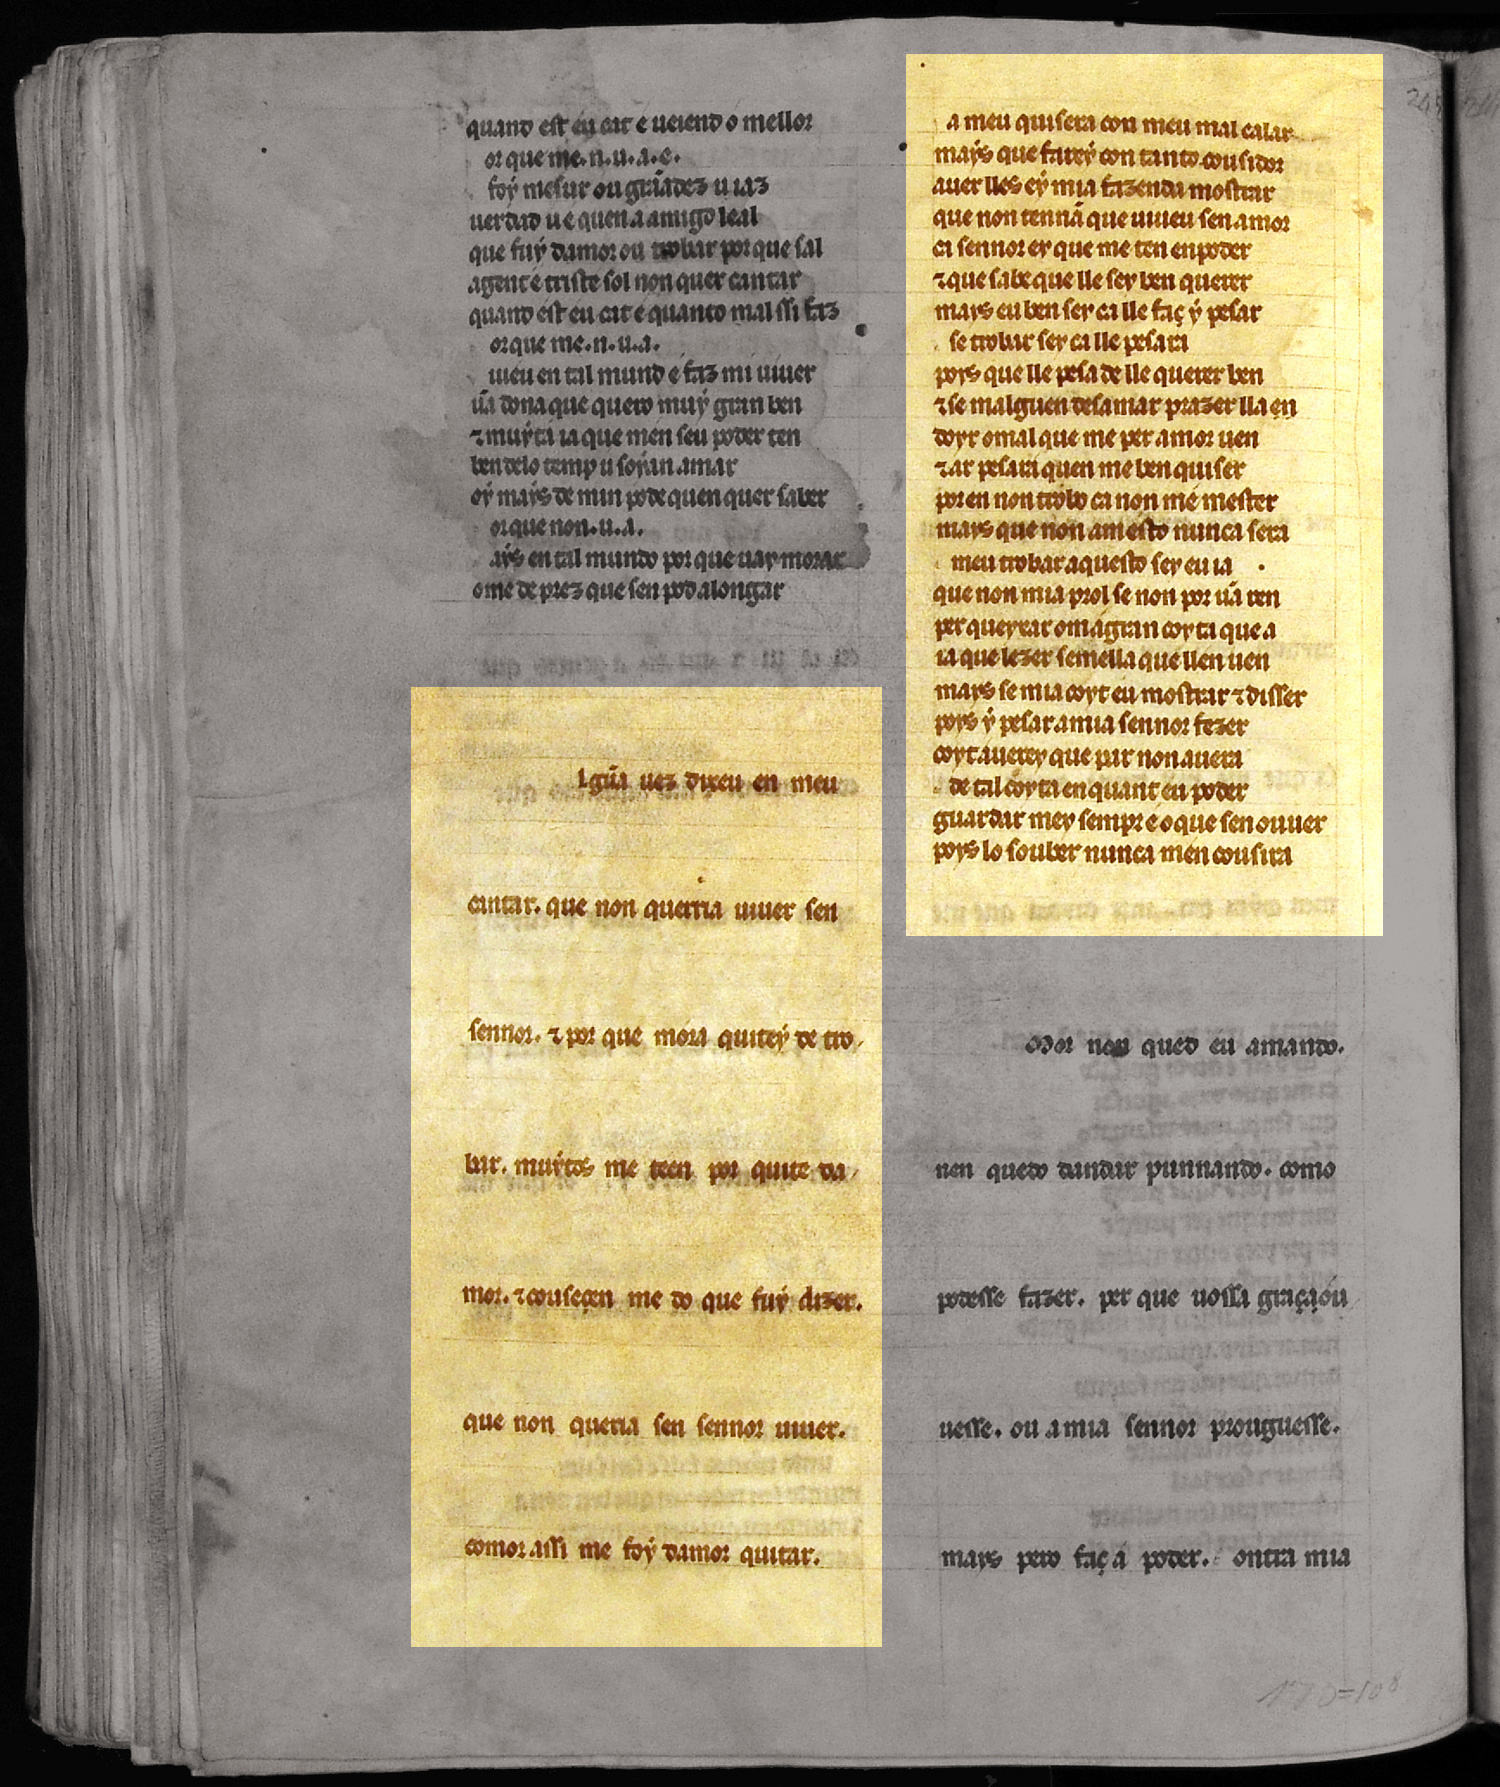 quand est eu cat e ueiend o mellor
or que me.n.u.a.e.
foy mesur ou grãadez u iaz
uerdad u é quen a amigo leal
que fuy damor ou trobar por que sal
a gent é triste sol non quer cantar
quand est eu cat e quanto mal ssi faz
or que me.n.u.a.
uieu en tal mund e faz mi uiuer
ũa dona que quero muy gran ben
⁊ muyta ia que men seu poder ten
ben delo temp u soyan amar
oy mays de min pode quen quer saber
or que non.u.a.
ays en tal mundo por que uay morar
ome de prez que sen pod alongar
lgũa uez dixeu en meu
cantar. que non querria uiuer sen
sennor. ⁊ por que mora quitey de tro
bar. muytos me teen por quite da
mor. ⁊ cousecen me do que fuy dizer.
que non queria sen sennor uiuer.
comor assi me foy damor quitar.
a meu quisera con meu mal calar
mays que farey con tanto cousidor
auer lles ey mia fazenda mostrar
que non tennã que uiueu sen amor
ei sennor er que me ten en poder
⁊ que sabe que lle sey ben querer
mays eu ben sey ca lle faç y pesar
se trobar sey ca lle pesara
poys que lle pesa de lle querer ben
⁊ se malguen desamar prazer lla en
doyr o mal que me per amor uen
⁊ ar pesara quen me ben quiser
por en non trobo ca non me mester
mays que non am esto nunca sera
meu trobar aquesto sey eu ia
que non mia prol se non por ũa ren
per queyxar om a gran coyta que a
ia que lezer semella que llen uen
mays se mia coyt eu mostrar ⁊ disser
poys y pesar a mia sennor fezer
coyt auerey que par non auera
de tal coyta en quant eu poder
guardar mey sempr e o que sen ouuer
poys lo souber nunca men cousira
Mor non qued eu amando.
nen quedo dandar punnando. como
podesse fazer. per que uossa graça ou
uesse. ou a mia sennor prouguesse.
mays pero faç a poder. ontra mia